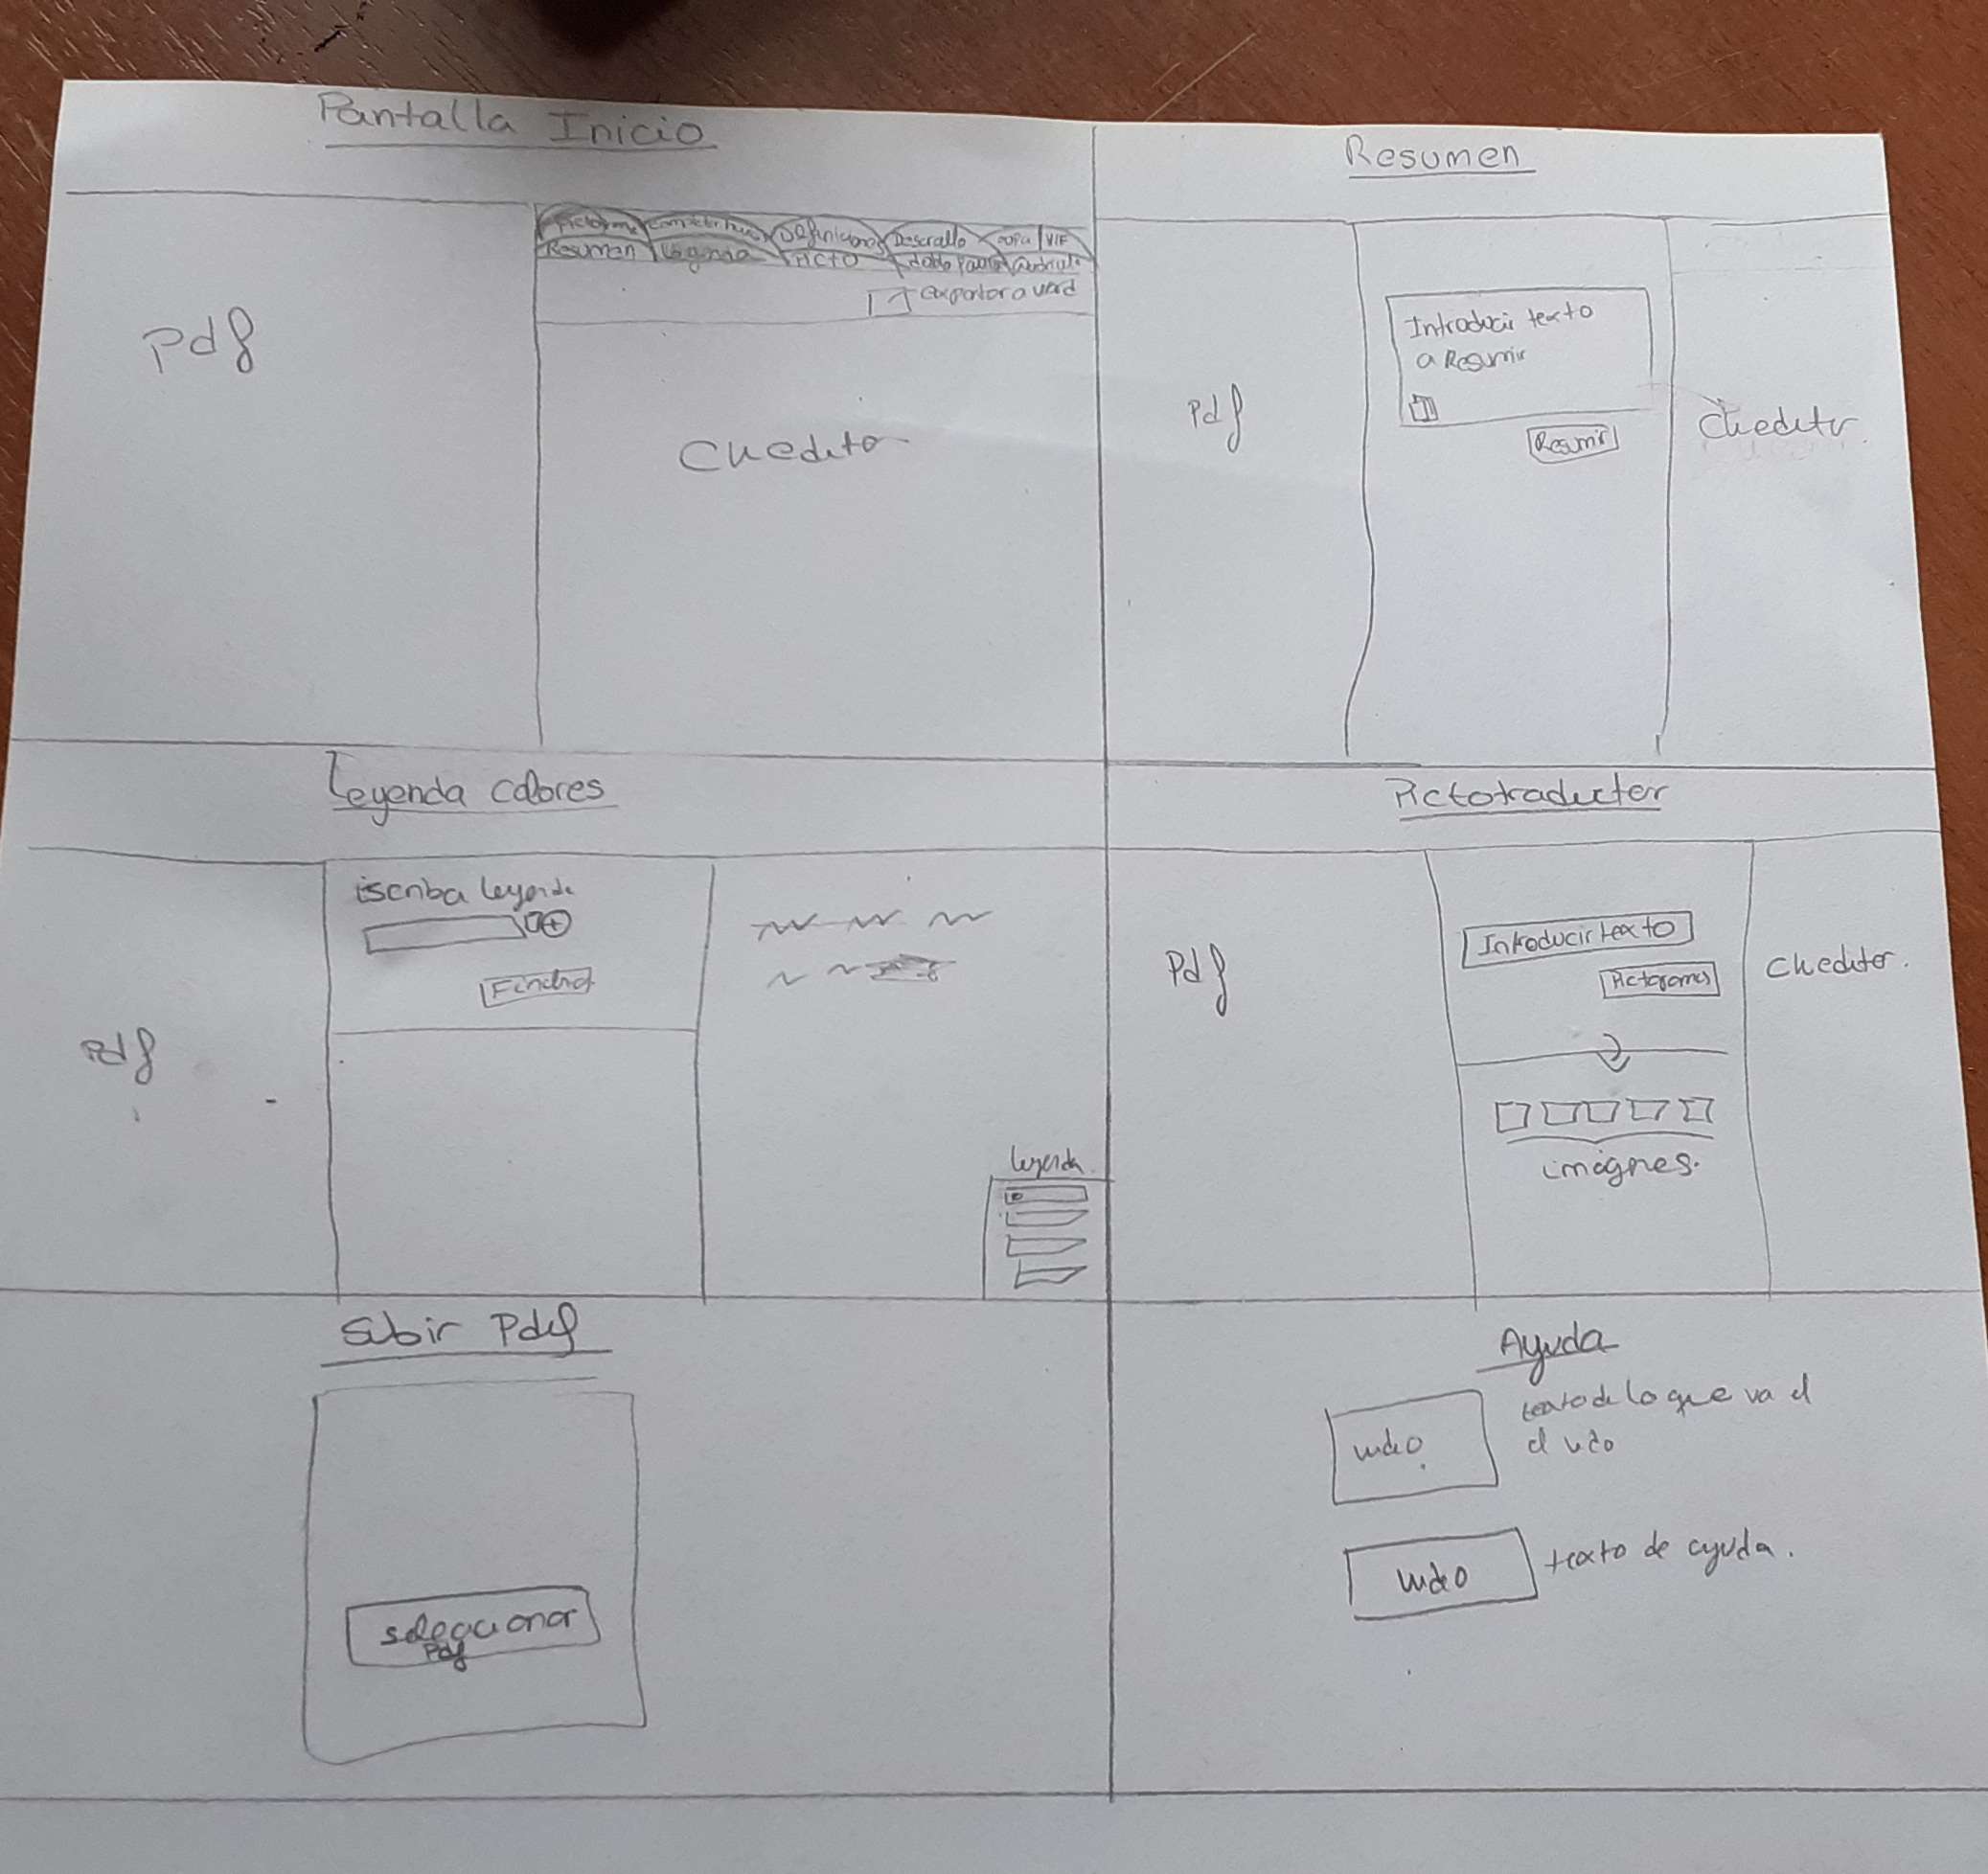 Pantalla Inicio
Pdf
Definiciones Desarollo sopa VIF
Resumen Leyenda PICTO
exportar a word
Ckeditor
Resumen
Pdf
Introducir texto
a Resumir
Resumir
Ckeditor.
Leyenda colores
Pdf
Escriba leyenda
Leyenda
Pictotraductor
Pdf
Introducir texto
Pictogramas
imágnes.
Ckeditor.
Subir Pdf
seleccionar
Pdf
Ayuda
video
texto de lo que va el
el video
video
texto de ayuda.